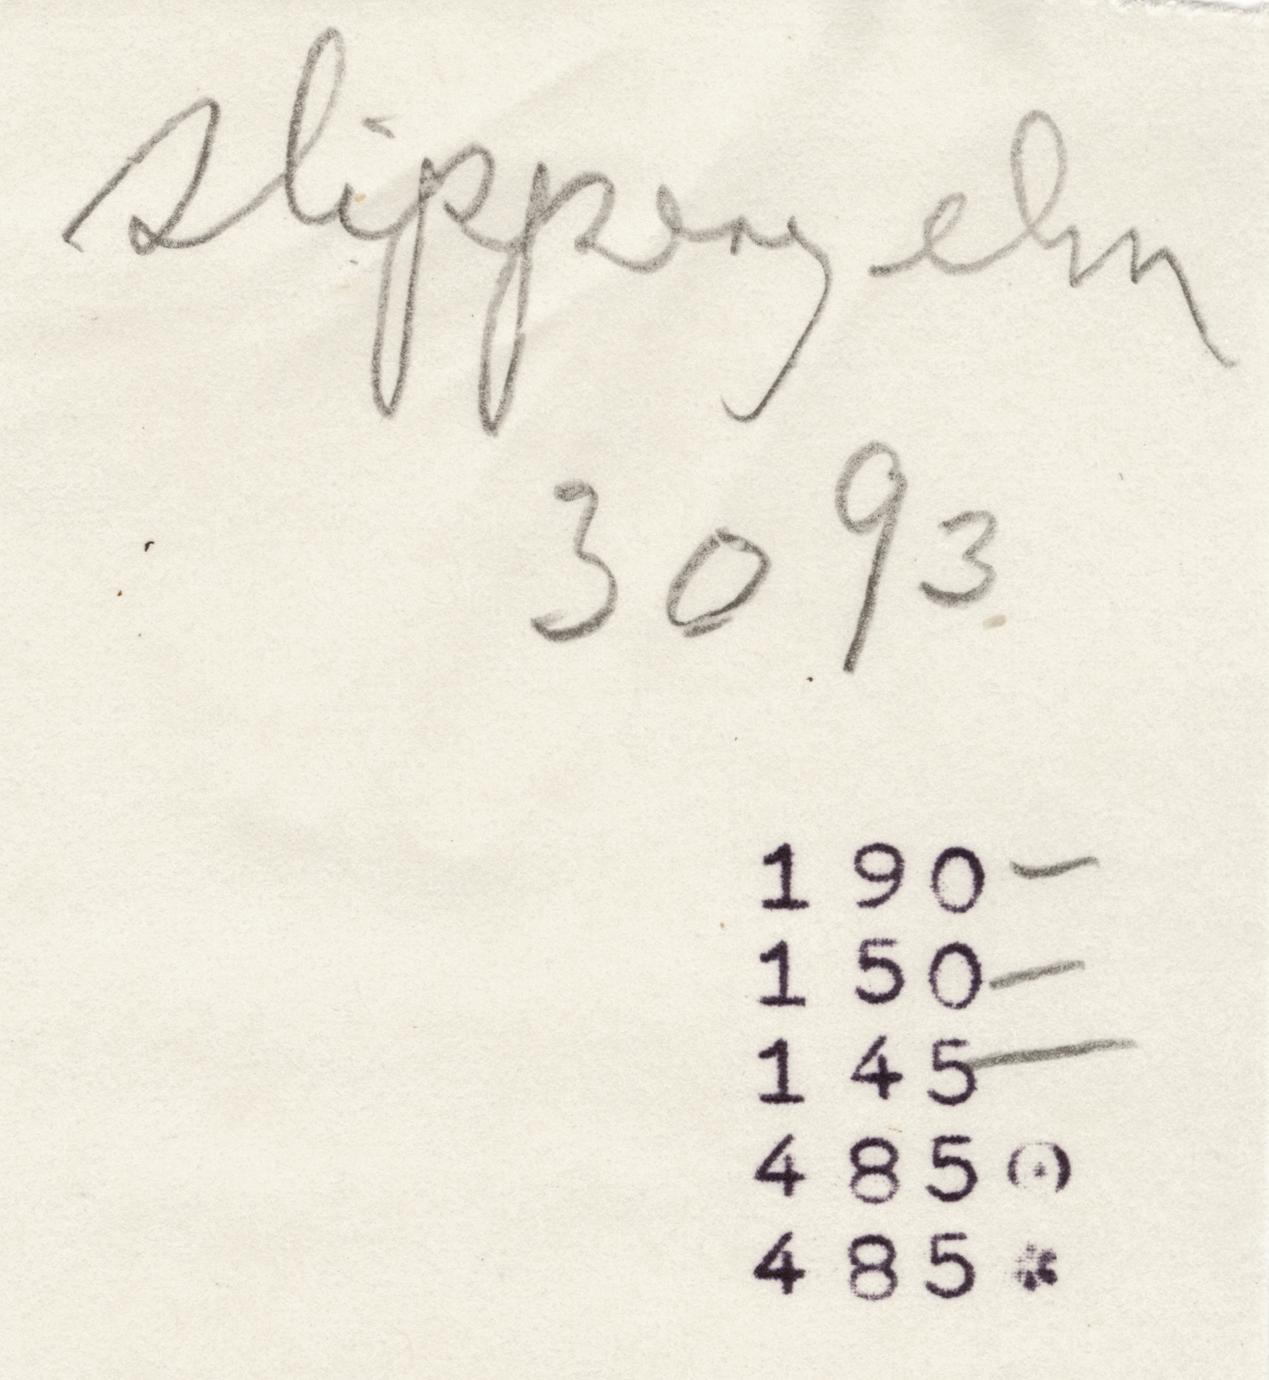 slippery elm
3093
1 90
1 50
1 45
4 85 ⊙
4 85 *